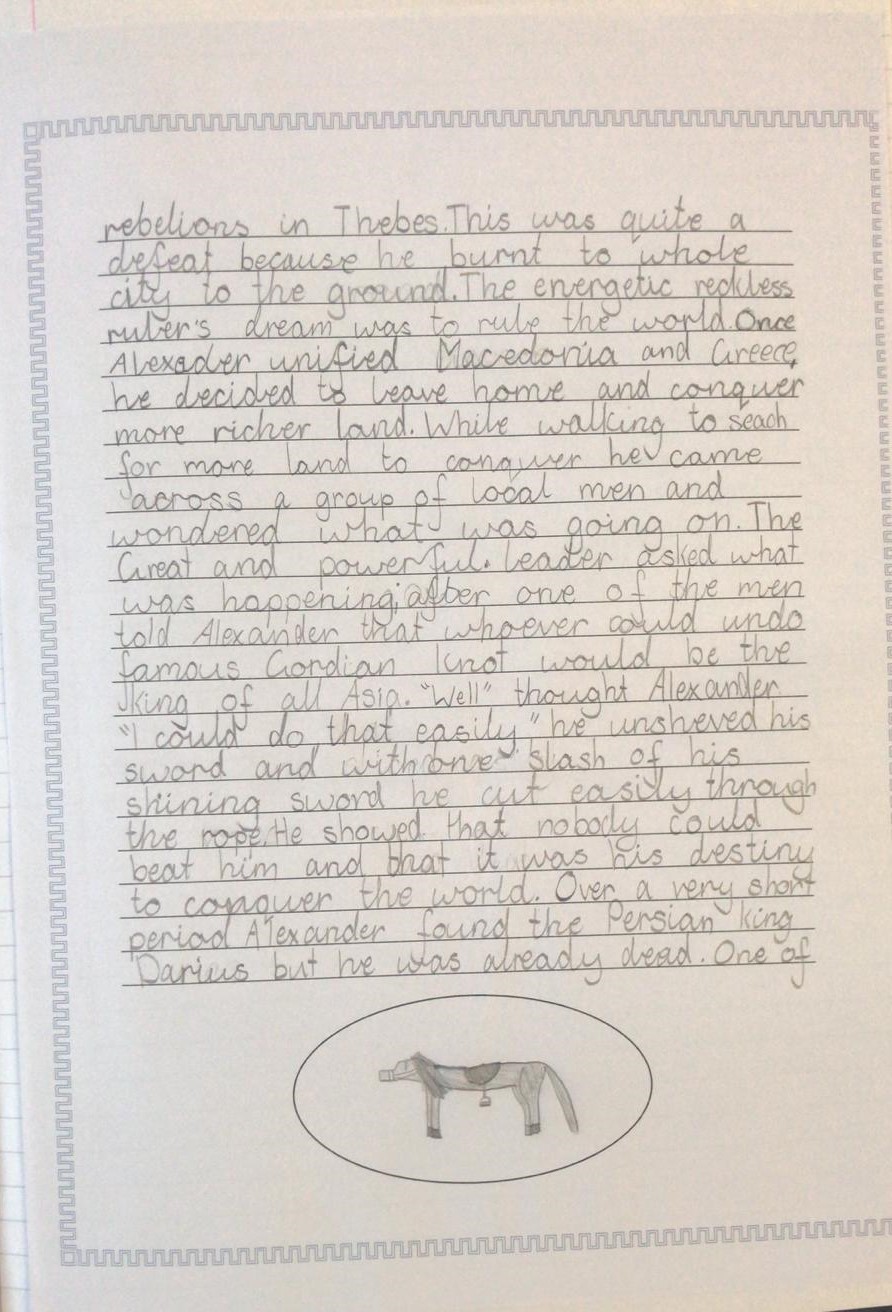 rebelions in Thebes. This was quite a
defeat because he burnt to whole
city to the ground. The energetic reckless
ruler's dream was to rule the world. Once
Alexader unified Macedonia and Greece,
he decided to leave home and conquer
more richer land. While walking to seach
for more land to conquer he came
across a group of local men and
wondered what was going on. The
Great and powerful. leader asked what
was happening; after one of the men
told Alexander that whoever could undo
famous Gordian knot would be the
king of all Asia. "Well" thought Alexander
"I could do that easily," he unsheved his
sword and with one slash of his
shining sword he cut easily through
the rope. He showed that nobody could
beat him and that it was his destiny
to conquer the world. Over a very short
period Alexander found the Persian king
Darius but he was already dead. One of